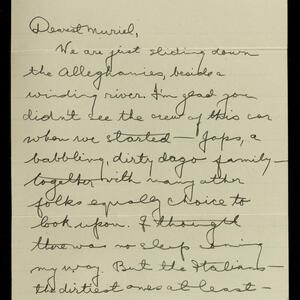 Dearest Muriel,
We are just sliding down
the Alleghanies, beside a
winding river. I'm glad you
didn't see the crew of this car
when we started — Japs, a
babbling, dirty dago family —
together with many other
folks equally choice to
look upon. I thought
there was no sleep coming
my way. But the Italians —
the dirtiest ones at least —